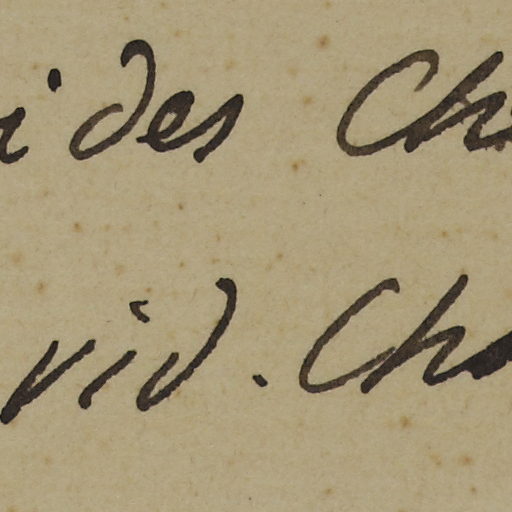 ides Ch
vid. Cha